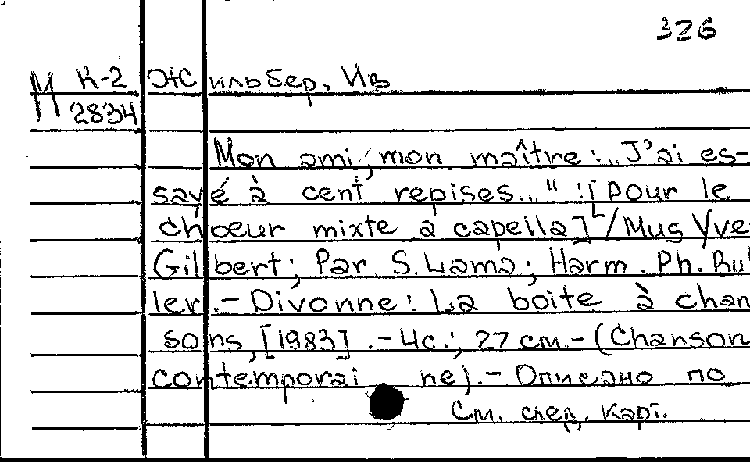 326
М К-2 Жильбер, Ив
2834
Mon ami, mon maître: „J'ai es-
sayé à cent repises..." : [pour le
choeur mixte a capella] / Mus Yve
Gilbert; Par. S. Lama; Harm. Ph. Bul
ler. – Divonne: La boite à chan
sons, [1983]. – 4с.; 27 см. – (Chanson
contemporai ne). – Описано по
См. след. карт.